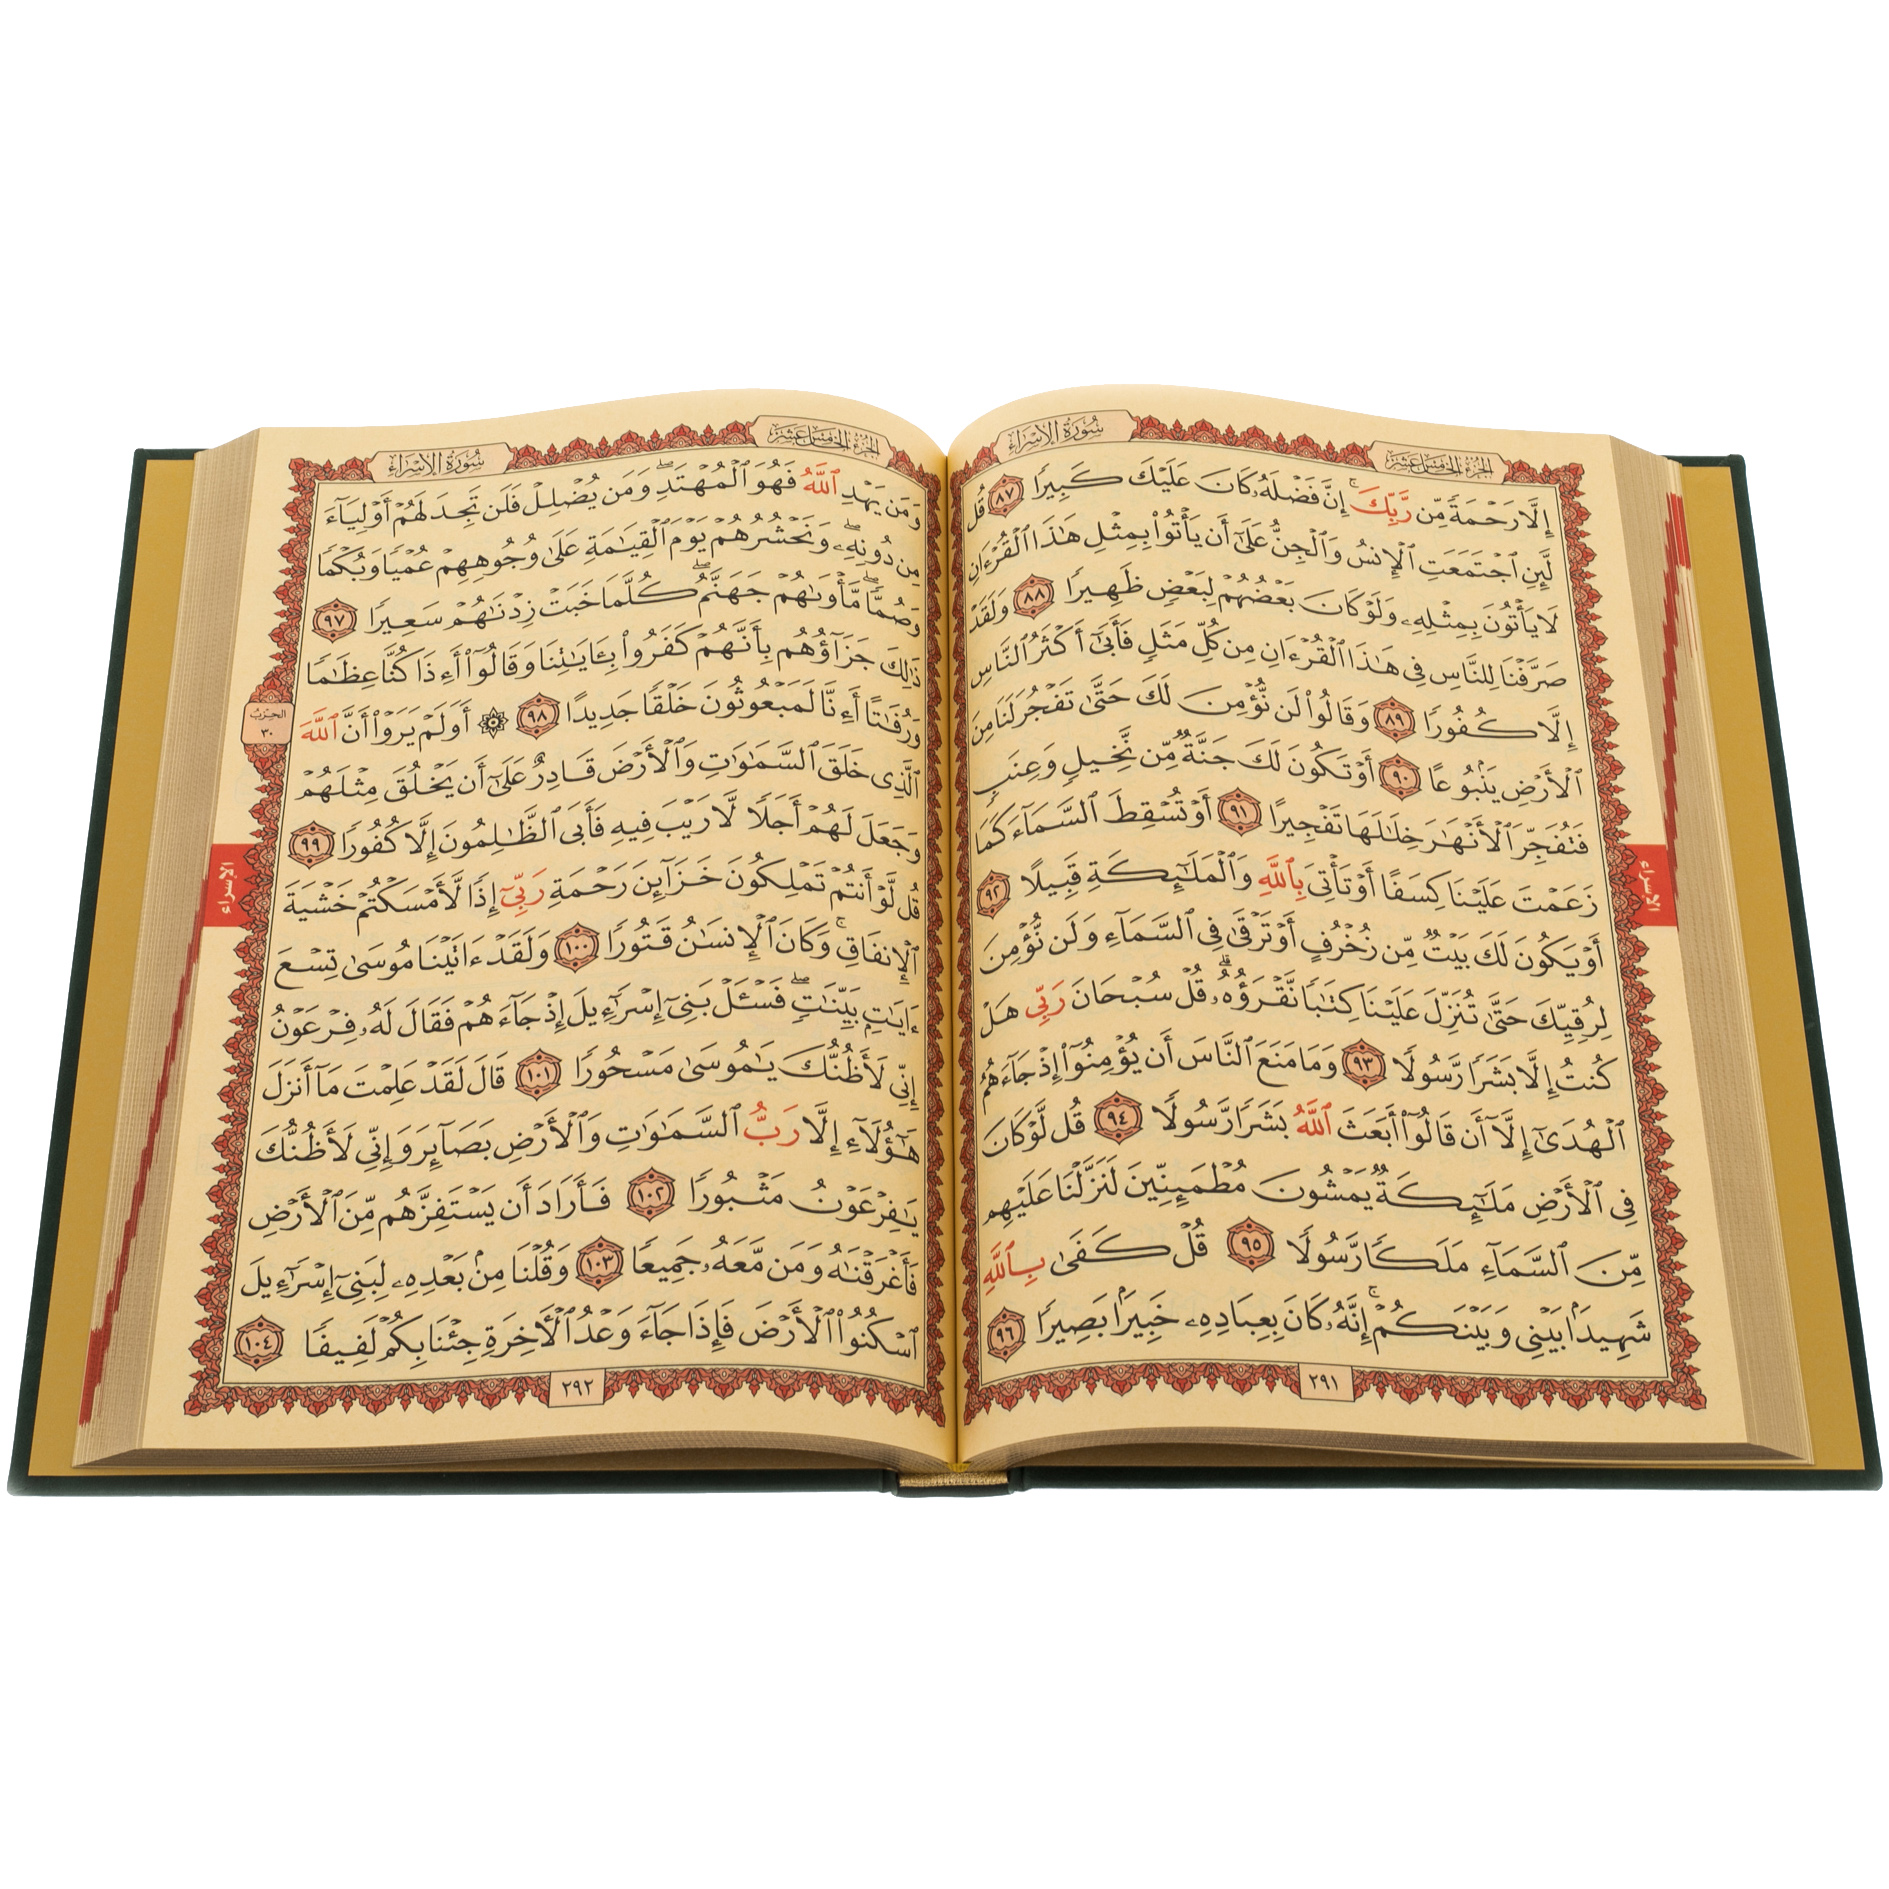 سُورَةُ الإِسْرَاءِ
الجُزْءُ الخَامِسَ عَشَرَ
إِلَّا رَحْمَةً مِّن رَّبِّكَ ۚ إِنَّ فَضْلَهُۥ كَانَ عَلَيْكَ كَبِيرًا ٨٧ قُل
لَّئِنِ ٱجْتَمَعَتِ ٱلْإِنسُ وَٱلْجِنُّ عَلَىٰٓ أَن يَأْتُوا۟ بِمِثْلِ هَـٰذَا ٱلْقُرْءَانِ
لَا يَأْتُونَ بِمِثْلِهِۦ وَلَوْ كَانَ بَعْضُهُمْ لِبَعْضٍ ظَهِيرًا ٨٨ وَلَقَدْ
صَرَّفْنَا لِلنَّاسِ فِى هَـٰذَا ٱلْقُرْءَانِ مِن كُلِّ مَثَلٍ فَأَبَىٰٓ أَكْثَرُ ٱلنَّاسِ
إِلَّا كُفُورًا ٨٩ وَقَالُوا۟ لَن نُّؤْمِنَ لَكَ حَتَّىٰ تَفْجُرَ لَنَا مِنَ
ٱلْأَرْضِ يَنۢبُوعًا ٩٠ أَوْ تَكُونَ لَكَ جَنَّةٌ مِّن نَّخِيلٍ وَعِنَبٍ
فَتُفَجِّرَ ٱلْأَنْهَـٰرَ خِلَـٰلَهَا تَفْجِيرًا ٩١ أَوْ تُسْقِطَ ٱلسَّمَآءَ كَمَا
زَعَمْتَ عَلَيْنَا كِسَفًا أَوْ تَأْتِىَ بِٱللَّهِ وَٱلْمَلَـٰٓئِكَةِ قَبِيلًا ٩٢
أَوْ يَكُونَ لَكَ بَيْتٌ مِّن زُخْرُفٍ أَوْ تَرْقَىٰ فِى ٱلسَّمَآءِ وَلَن نُّؤْمِنَ
لِرُقِيِّكَ حَتَّىٰ تُنَزِّلَ عَلَيْنَا كِتَـٰبًا نَّقْرَؤُهُۥ ۗ قُلْ سُبْحَانَ رَبِّى هَلْ
كُنتُ إِلَّا بَشَرًا رَّسُولًا ٩٣ وَمَا مَنَعَ ٱلنَّاسَ أَن يُؤْمِنُوٓا۟ إِذْ جَآءَهُمُ
ٱلْهُدَىٰٓ إِلَّآ أَن قَالُوٓا۟ أَبَعَثَ ٱللَّهُ بَشَرًا رَّسُولًا ٩٤ قُل لَّوْ كَانَ
فِى ٱلْأَرْضِ مَلَـٰٓئِكَةٌ يَمْشُونَ مُطْمَئِنِّينَ لَنَزَّلْنَا عَلَيْهِم
مِّنَ ٱلسَّمَآءِ مَلَكًا رَّسُولًا ٩٥ قُلْ كَفَىٰ بِٱللَّهِ
شَهِيدًۢا بَيْنِى وَبَيْنَكُمْ ۚ إِنَّهُۥ كَانَ بِعِبَادِهِۦ خَبِيرًۢا بَصِيرًا ٩٦
٢٩١
الاسراء
سُورَةُ الإِسْرَاءِ
الجُزْءُ الخَامِسَ عَشَرَ
وَمَن يَهْدِ ٱللَّهُ فَهُوَ ٱلْمُهْتَدِ ۖ وَمَن يُضْلِلْ فَلَن تَجِدَ لَهُمْ أَوْلِيَآءَ
مِن دُونِهِۦ ۖ وَنَحْشُرُهُمْ يَوْمَ ٱلْقِيَـٰمَةِ عَلَىٰ وُجُوهِهِمْ عُمْيًا وَبُكْمًا
وَصُمًّا ۖ مَّأْوَىٰهُمْ جَهَنَّمُ ۖ كُلَّمَا خَبَتْ زِدْنَـٰهُمْ سَعِيرًا ٩٧
ذَٰلِكَ جَزَآؤُهُم بِأَنَّهُمْ كَفَرُوا۟ بِـَٔايَـٰتِنَا وَقَالُوٓا۟ أَءِذَا كُنَّا عِظَـٰمًا
وَرُفَـٰتًا أَءِنَّا لَمَبْعُوثُونَ خَلْقًا جَدِيدًا ٩٨ ۞ أَوَلَمْ يَرَوْا۟ أَنَّ ٱللَّهَ
ٱلَّذِى خَلَقَ ٱلسَّمَـٰوَٰتِ وَٱلْأَرْضَ قَادِرٌ عَلَىٰٓ أَن يَخْلُقَ مِثْلَهُمْ
وَجَعَلَ لَهُمْ أَجَلًا لَّا رَيْبَ فِيهِ فَأَبَى ٱلظَّـٰلِمُونَ إِلَّا كُفُورًا ٩٩
قُل لَّوْ أَنتُمْ تَمْلِكُونَ خَزَآئِنَ رَحْمَةِ رَبِّىٓ إِذًا لَّأَمْسَكْتُمْ خَشْيَةَ
ٱلْإِنفَاقِ ۚ وَكَانَ ٱلْإِنسَـٰنُ قَتُورًا ١٠٠ وَلَقَدْ ءَاتَيْنَا مُوسَىٰ تِسْعَ
ءَايَـٰتٍۭ بَيِّنَـٰتٍ ۖ فَسْـَٔلْ بَنِىٓ إِسْرَٰٓءِيلَ إِذْ جَآءَهُمْ فَقَالَ لَهُۥ فِرْعَوْنُ
إِنِّى لَأَظُنُّكَ يَـٰمُوسَىٰ مَسْحُورًا ١٠١ قَالَ لَقَدْ عَلِمْتَ مَآ أَنزَلَ
هَـٰٓؤُلَآءِ إِلَّا رَبُّ ٱلسَّمَـٰوَٰتِ وَٱلْأَرْضِ بَصَآئِرَ وَإِنِّى لَأَظُنُّكَ
يَـٰفِرْعَوْنُ مَثْبُورًا ١٠٢ فَأَرَادَ أَن يَسْتَفِزَّهُم مِّنَ ٱلْأَرْضِ
فَأَغْرَقْنَـٰهُ وَمَن مَّعَهُۥ جَمِيعًا ١٠٣ وَقُلْنَا مِنۢ بَعْدِهِۦ لِبَنِىٓ إِسْرَٰٓءِيلَ
ٱسْكُنُوا۟ ٱلْأَرْضَ فَإِذَا جَآءَ وَعْدُ ٱلْـَٔاخِرَةِ جِئْنَا بِكُمْ لَفِيفًا ١٠٤
٢٩٢
الحزب
٣٠
الاسراء